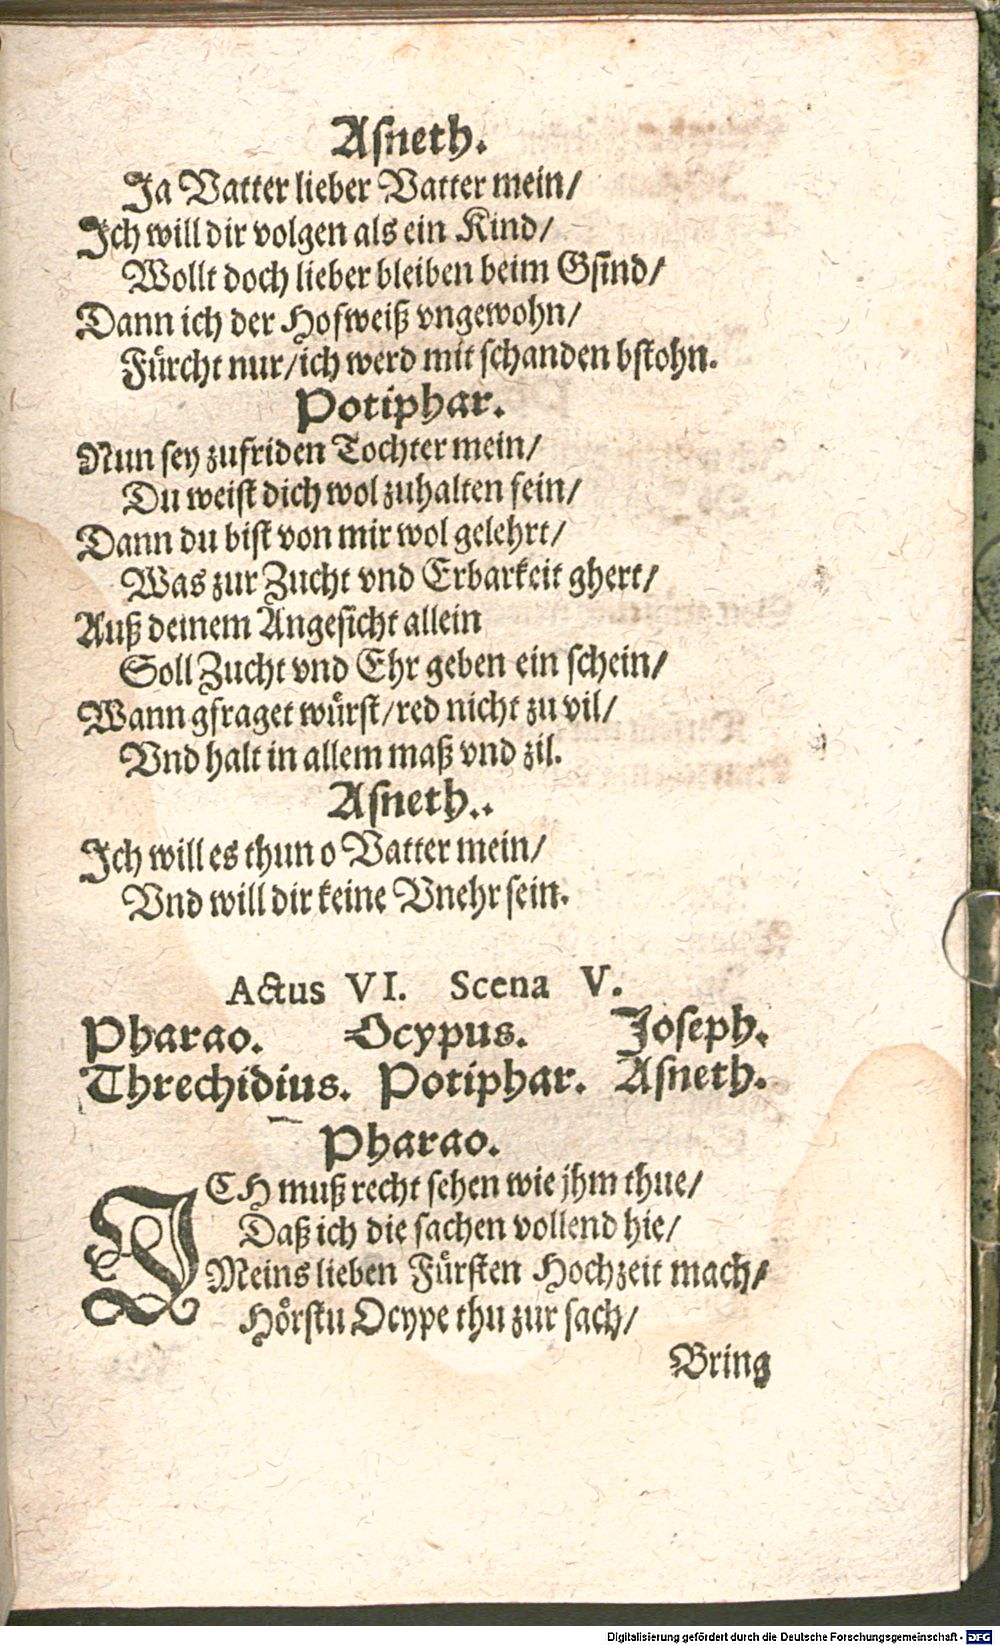 Aſneth.
Ja Vatter lieber Vatter mein/
Ich will dir volgen als ein Kind/
Wollt doch lieber bleiben beim Gſind/
Dann ich der Hofweiß vngewohn/
Fürcht nur/ ich werd mit ſchanden bſtohn.
Potiphar.
Nun ſey zufriden Tochter mein/
Du weiſt dich wol zuhalten fein/
Dann du biſt von mir wol gelehrt/
Was zur Zucht vnd Erbarkeit ghert/
Auß deinem Angeſicht allein
Soll Zucht vnd Ehr geben ein ſchein/
Wann gfraget würſt/ red nicht zu vil/
Vnd halt in allem maß vnd zil.
Aſneth..
Ich will es thun o Vatter mein/
Vnd will dir keine Vnehr ſein.
Actus VI. Scena V.
Pharao. Ocypus. Joſeph.
Threchidius. Potiphar. Aſneth.
Pharao.
ICH muß recht ſehen wie jhm thue/
Daß ich die ſachen vollend hie/
Meins lieben Fürſten Hochzeit mach/
Hörſtu Ocype thu zur ſach/
Bring
Digitalisierung gefördert durch die Deutsche Forschungsgemeinschaft - DFG